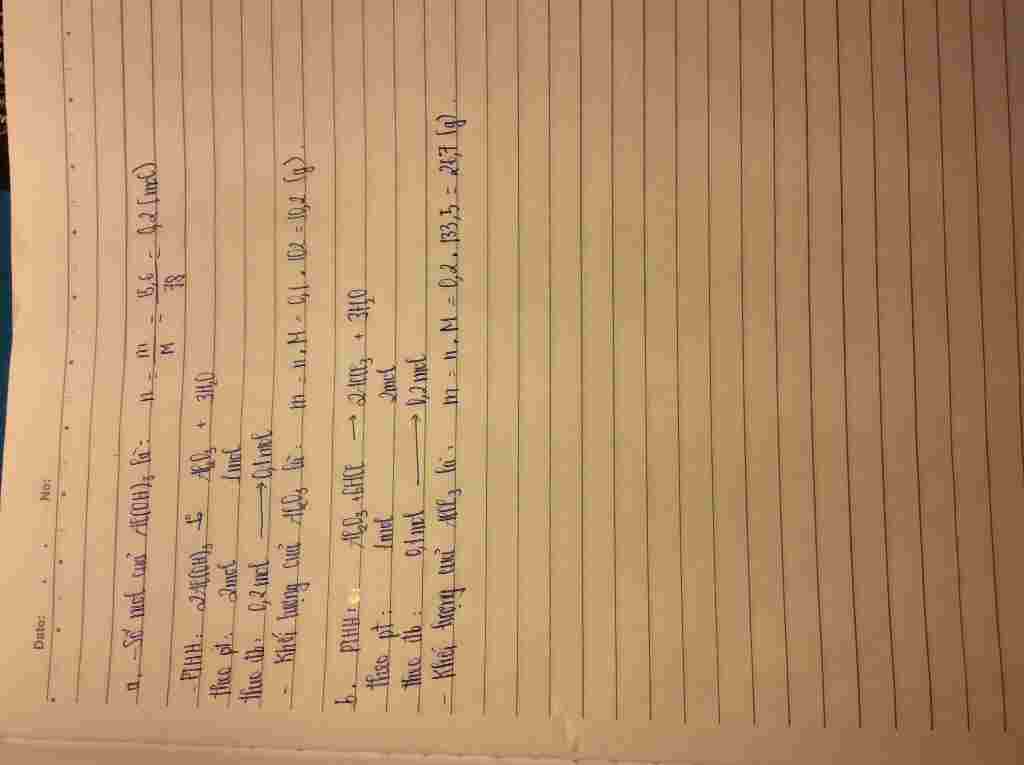 Date: No:
a, - Số mol của Al(OH)3 là: n = m/M = 15,6/78 = 0,2 (mol)
- PTHH: 2Al(OH)3 → Al2O3 + 3H2O
theo pt: 2mol 1mol
theo đb: 0,2 mol → 0,1 mol
- Khối lượng của Al2O3 là: m = n . M = 0,1 . 102 = 10,2 (g).
b, PTHH: Al2O3 + 6HCl → 2AlCl3 + 3H2O
theo pt: 1mol 2mol
theo đb: 0,1 mol → 0,2 mol
- Khối lượng của AlCl3 là: m = n . M = 0,2 . 133,5 = 26,7 (g).